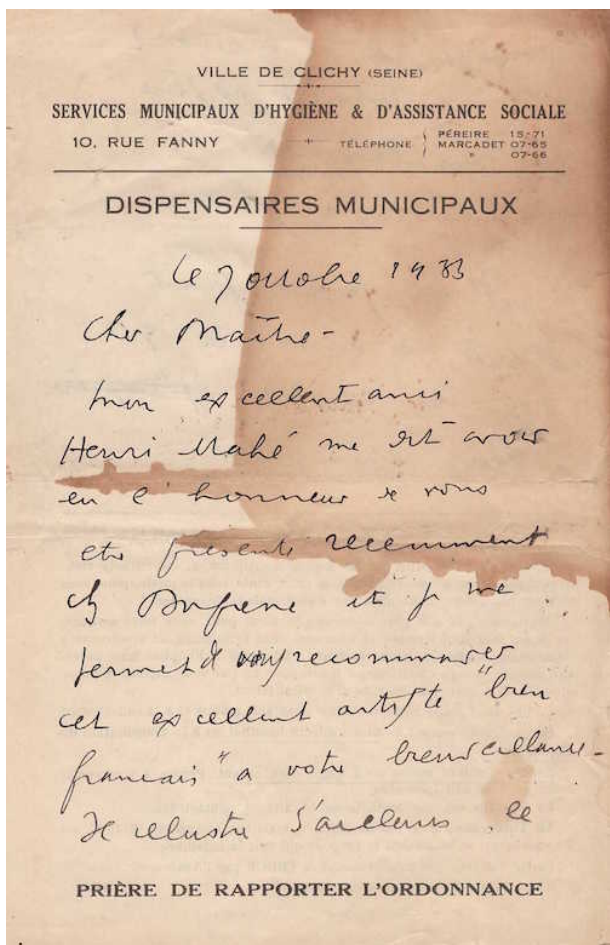 VILLE DE CLICHY (SEINE)
SERVICES MUNICIPAUX D'HYGIÈNE & D'ASSISTANCE SOCIALE
10, RUE FANNY TÉLÉPHONE { PÉREIRE 15-71
MARCADET 07-65
» 07-66
DISPENSAIRES MUNICIPAUX
Le 7 octobre 1933
Cher Maître -
mon excellent ami
Henri Mahé me dit avoir
eu l'honneur de vous
etre presenté recemment
et je me
permet de recommander
cet excellent artiste "bien
francais" a votre bienveillance -
Il illustre d'ailleurs le
PRIÈRE DE RAPPORTER L'ORDONNANCE